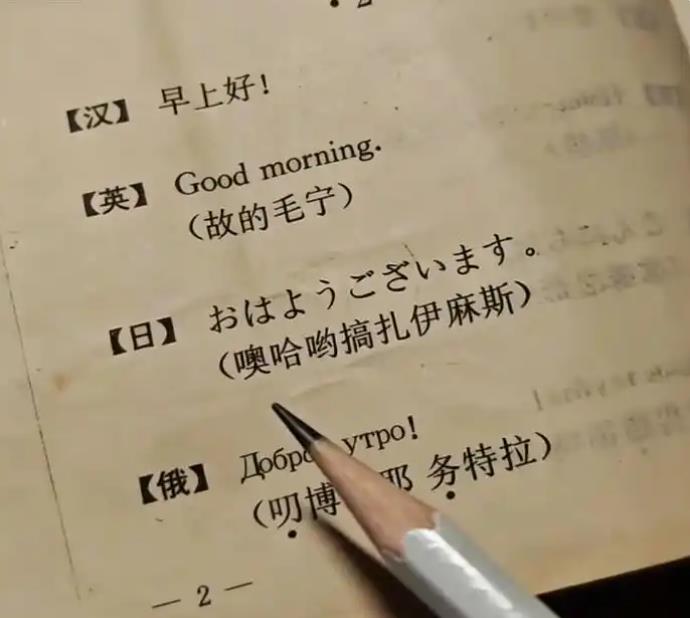 【汉】 早上好!
【英】 Good morning.
(故的毛宁)
【日】 おはようございます。
(噢哈哟搞扎伊麻斯)
【俄】 утро!
(叨博 耶 务特拉)
— 2 —